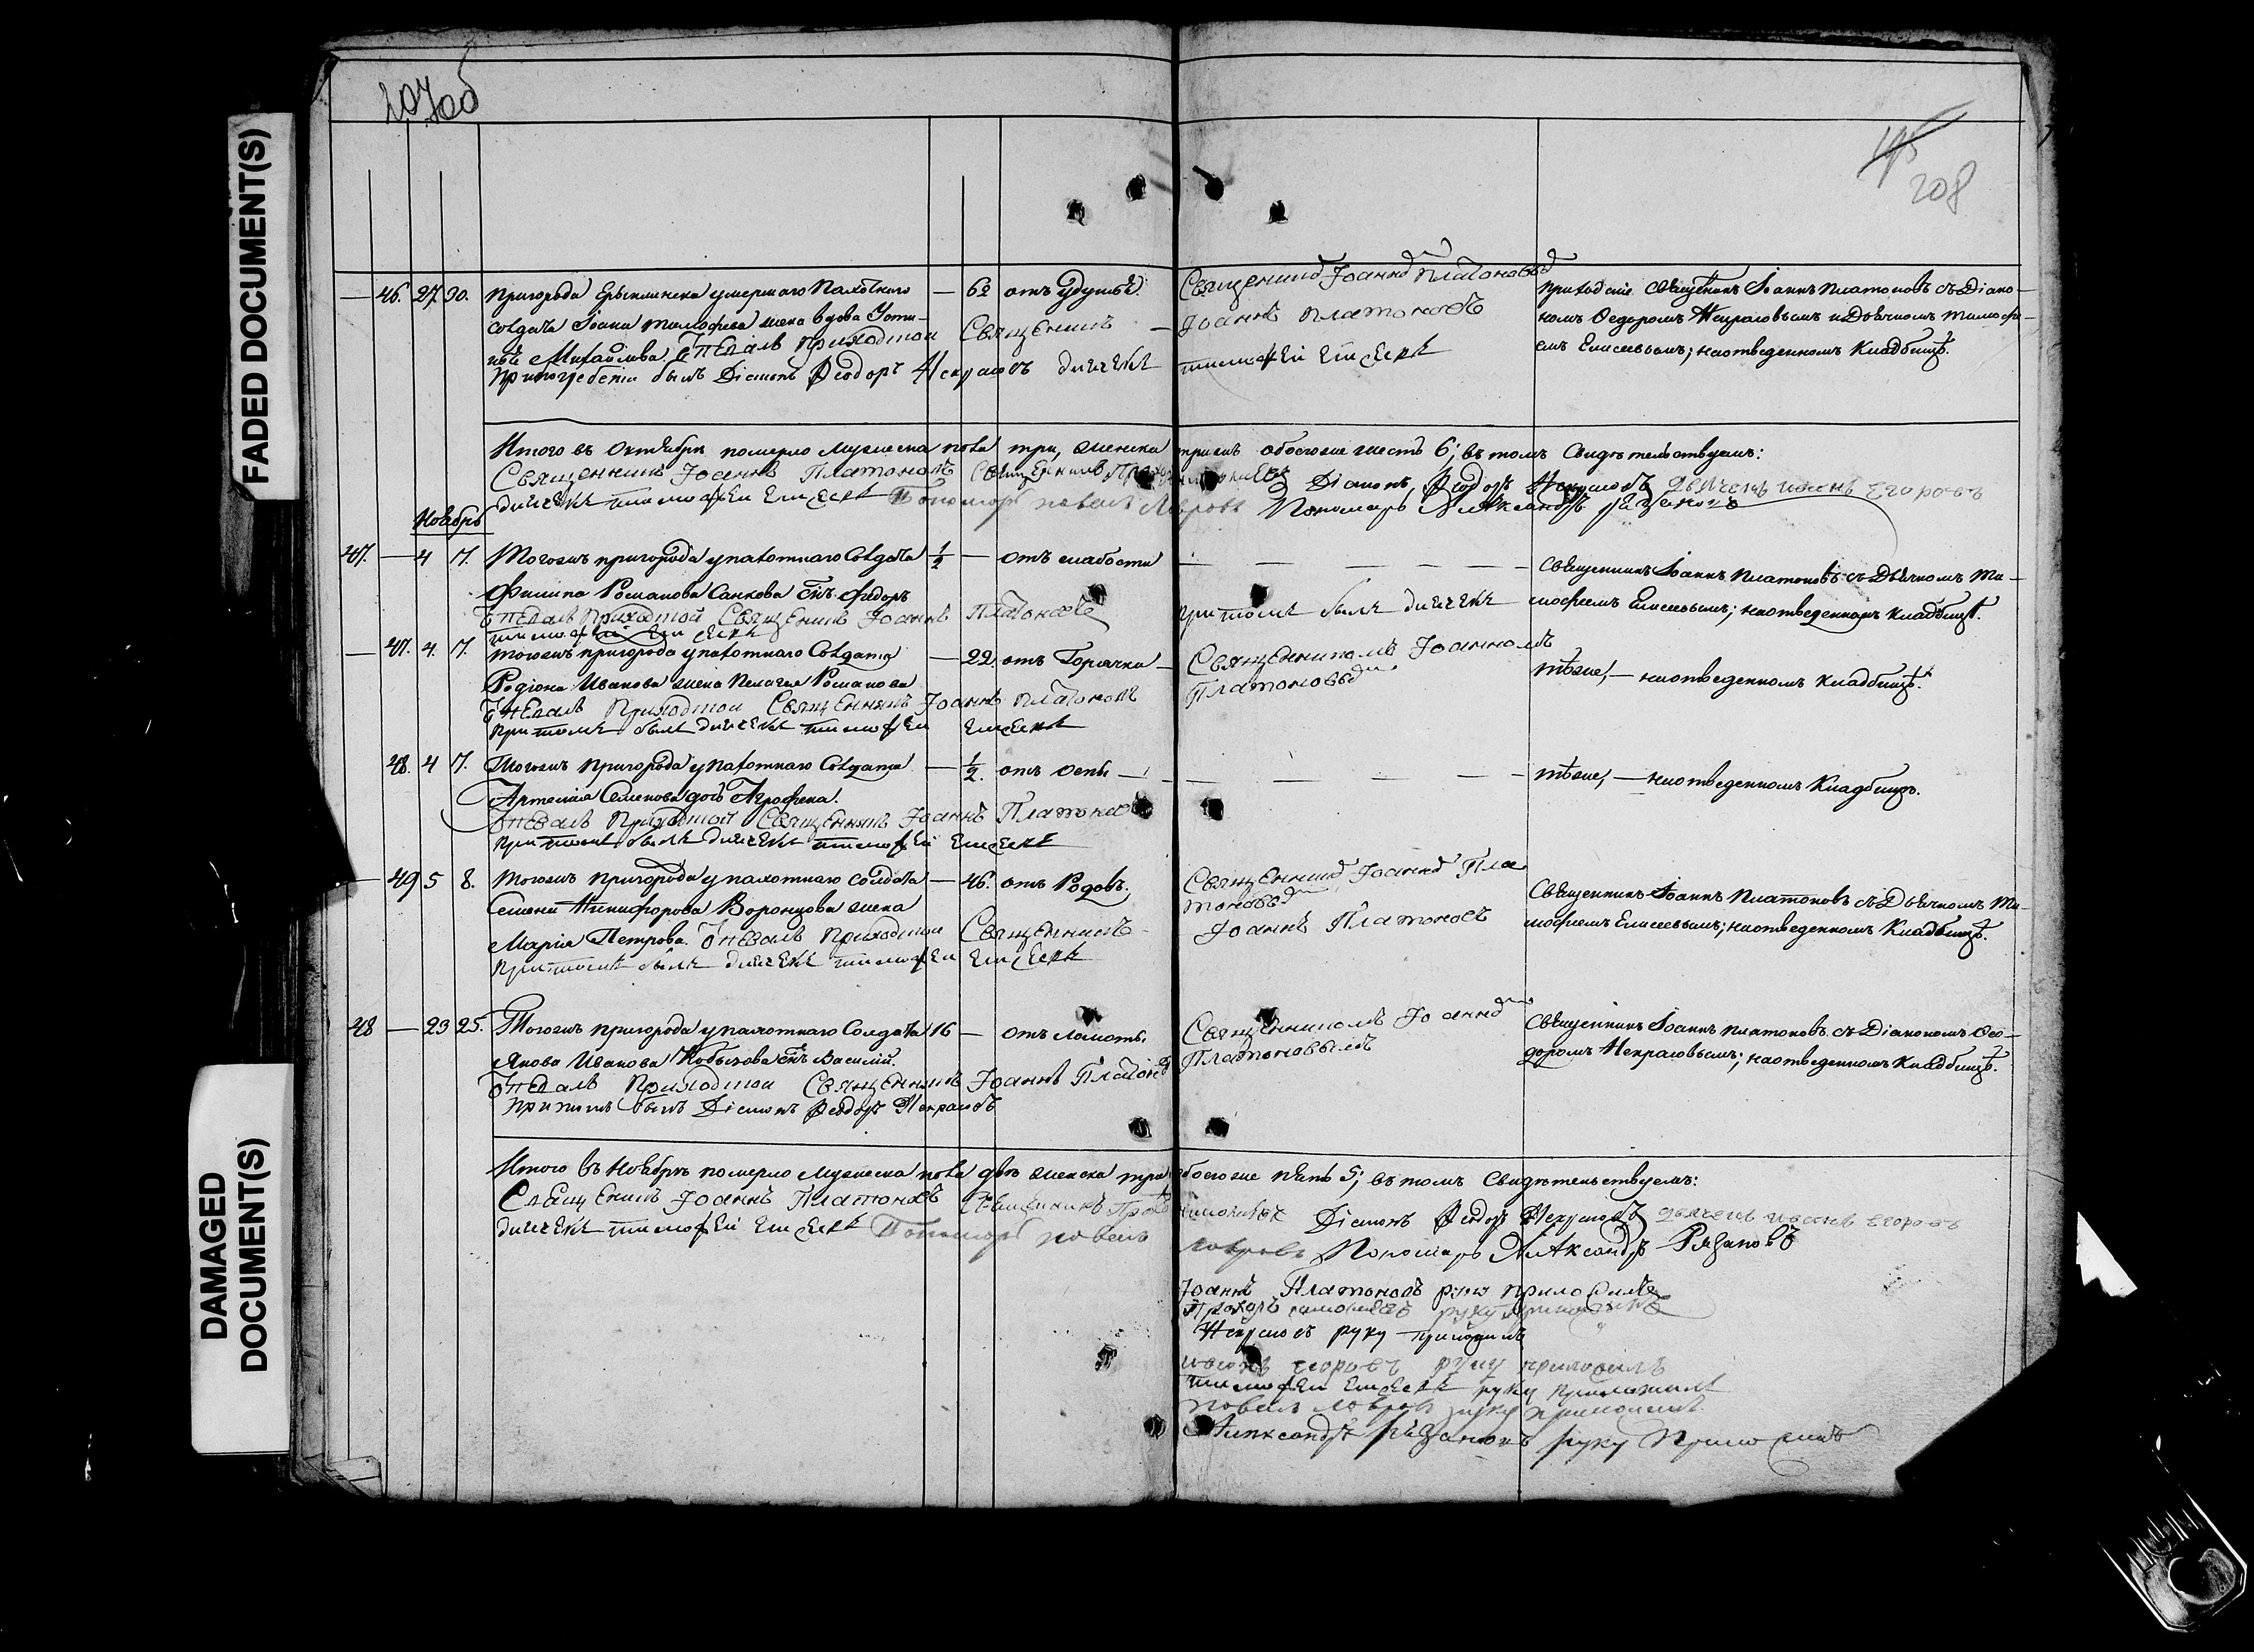 FADED DOCUMENT(S)
DAMAGED DOCUMENT(S)
207об
208
46. 27 30. Пригорода Ерыклинска умершаго Пахотнаго — 62 отъ удушья. Священникъ Іоаннъ Платоновъ приходскіе Священникъ Іоаннъ Платоновъ съ Діако-
солдата Іоана Тимофеева жена вдова Усти- Іоаннъ Платоновъ номъ Федоромъ Некрасовымъ и Дьячкомъ Тимофе-
нья Михайлова. Отпевалъ Приходской Священникъ емъ Елисеевымъ; на отведенномъ Кладбищѣ.
При погребеніи былъ Діаконъ Феодоръ Некрасовъ дьячекъ тимофей Елисеевъ
Итого въ Октябрѣ померло мужеска пола три, женска три и обоего же шесть 6; въ томъ Свидѣтельствуемъ:
Священникъ Іоаннъ Платоновъ Священникъ Діаконъ Феодоръ Некрасовъ дьячекъ иванъ Егоровъ
дьячекъ тимофей Елисеевъ Пономарь павелъ Лавровъ Пономарь Александръ Рязановъ
Ноябрь
47. — 4 7. Тогожъ пригорода у пахотнаго Солдата 1/2 — отъ слабости — Священникъ Іоаннъ Платоновъ съ Дьячкомъ Ти-
Филипа Романова Санкова сынъ Федоръ мофеемъ Елисеевымъ; на отведенномъ Кладбищѣ.
Отпевалъ Приходской Священникъ Іоаннъ Платоновъ при томъ былъ дьячекъ
тимофей Елисеевъ
— 47. 4. 7. Тогожъ пригорода у пахотнаго Солдата — 22. отъ Горячки — Священникомъ Іоанномъ тѣже, — на отведенномъ Кладбищѣ.
Родіона Иванова жена Пелагея Романова Платоновымъ
Отпевалъ Приходской Священникъ Іоаннъ Платоновъ
при томъ былъ дьячекъ тимофей Елисеевъ
48. 4 7. Тогожъ пригорода у Пахотнаго Солдата — 1/2. отъ оспы — тѣже, — на отведенномъ Кладбищѣ.
Артемія Семенова дочь Агрофена.
Отпевалъ Приходской Священникъ Іоаннъ Платоновъ
при томъ былъ дьячекъ тимофей Елисеевъ
— 49 5 8. Тогожъ пригорода у пахотнаго солдата — 46. отъ Родовъ. Священникъ Іоаннъ Пла Священникъ Іоаннъ Платоновъ съ Дьячкомъ Ти-
Семена Никифорова Воронцова жена тоновъ мофеемъ Елисеевымъ; на отведенномъ Кладбищѣ.
Марія Петрова. Отпевалъ Приходской Священникъ Іоаннъ Платоновъ
при томъ былъ дьячекъ тимофей Елисеевъ
48 — 23 25. Тогожъ пригорода у пахотнаго Солдата 16 — отъ ломоты Священникомъ Іоанномъ Священникъ Іоаннъ Платоновъ съ Діакономъ Фео-
Якова Иванова сынъ Василій. Платоновымъ доромъ Некрасовымъ; на отведенномъ Кладбищѣ.
Отпевалъ Приходской Священникъ Іоаннъ Платоновъ
При томъ былъ Діаконъ Феодоръ Некрасовъ
Итого въ Ноябрѣ померло мужеска пола двѣ женска три обоего же пять 5; въ томъ Свидѣтельствуемъ:
Священникъ Іоаннъ Платоновъ Священникъ Діаконъ Феодоръ Некрасовъ дьячекъ иванъ Егоровъ
дьячекъ тимофей Елисеевъ Пономарь павелъ Лавровъ Пономарь Александръ Рязановъ
Іоаннъ Платоновъ руку приложилъ
руку приложилъ
Некрасовъ руку приложилъ
иванъ егоровъ руку приложилъ
тимофей Елисеевъ руку приложилъ
павелъ Лавровъ руку приложилъ
Александръ Рязановъ руку Приложилъ